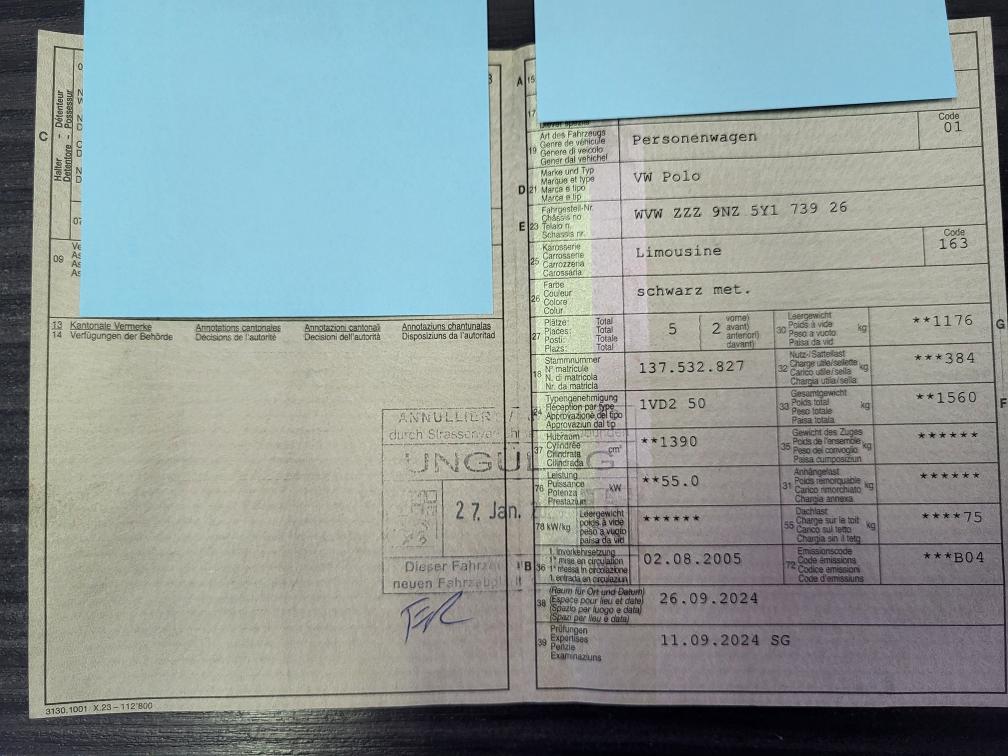 C
Halter - Détenteur
Detentore - Possessur
07
09
13 Kantonale Vermerke Annotations cantonales Annotazioni cantonali Annotaziuns chantunalas
14 Verfügungen der Behörde Décisions de l'autorité Decisioni dell'autorità Disposiziuns da l'autoritad
ANNULLIER
durch Strassenver
UNGÜL G
27. Jan.
Dieser Fahrze
neuen Fahrzeu
3130.1001 X.23 – 112'800
A 15
17
19 Art des Fahrzeugs
Genre de véhicule
Genere di veicolo
Gener dal vehichel
Personenwagen
Code
01
D 21 Marke und Typ
Marque et type
Marca e tipo
Marca e tip
VW Polo
E 23 Fahrgestell-Nr.
Châssis no
Telaio n.
Schassis nr.
WVW ZZZ 9NZ 5Y1 739 26
25 Karosserie
Carrosserie
Carrozzeria
Carossaria
Limousine
Code
163
26 Farbe
Couleur
Colore
Colur
schwarz met.
27 Plätze: Total
Places: Total
Posti: Totale
Plazs: Total
5 ( 2 vorne)
avant)
anteriori)
davant)
30 Leergewicht
Poids à vide
Peso a vuoto
Paisa da vid
kg
**1176
G
18 Stammnummer
N° matricule
N. di matricola
Nr. da matricla
137.532.827
32 Nutz-/Sattellast
Charge utile/sellette
Carico utile/sella
Chargia utila/sella
kg
***384
24 Typengenehmigung
Réception par type
Approvazione del tipo
Approvaziun dal tip
1VD2 50
33 Gesamtgewicht
Poids total
Peso totale
Paisa totala
kg
**1560
F
37 Hubraum
Cylindrée
Cilindrata
Cilindrada
cm³
**1390
35 Gewicht des Zuges
Poids de l'ensemble
Peso del convoglio
Paisa cumposiziun
kg
******
76 Leistung
Puissance
Potenza
Prestaziun
kW
**55.0
31 Anhängelast
Poids remorquable
Carico rimorchiato
Chargia annexa
kg
******
78 kW/kg
Leergewicht
poids à vide
peso a vuoto
paisa da vid
******
55 Dachlast
Charge sur le toit
Carico sul tetto
Chargia sin il tetg
kg
****75
B 36 1. Inverkehrsetzung
1re mise en circulation
1a messa in circolazione
1. entrada en circulaziun
02.08.2005
72 Emissionscode
Code émissions
Codice emissioni
Code d'emissiuns
***B04
38 (Raum für Ort und Datum)
(Espace pour lieu et date)
(Spazio per luogo e data)
(Spazi per lieu e data)
26.09.2024
39 Prüfungen
Expertises
Perizie
Examinaziuns
11.09.2024 SG